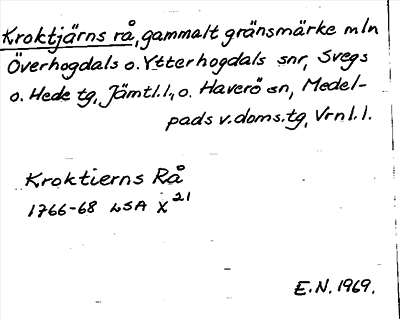 Kroktjärns rå, gammalt gränsmärke mln
Överhogdals o. Ytterhogdals snr, Svegs
o. Hede tg, Jämtl.l., o. Haverö sn, Medel-
pads v. doms.tg, Vrnl.l.
Kroktierns Rå
1766-68 LSA X21
E.N. 1969.